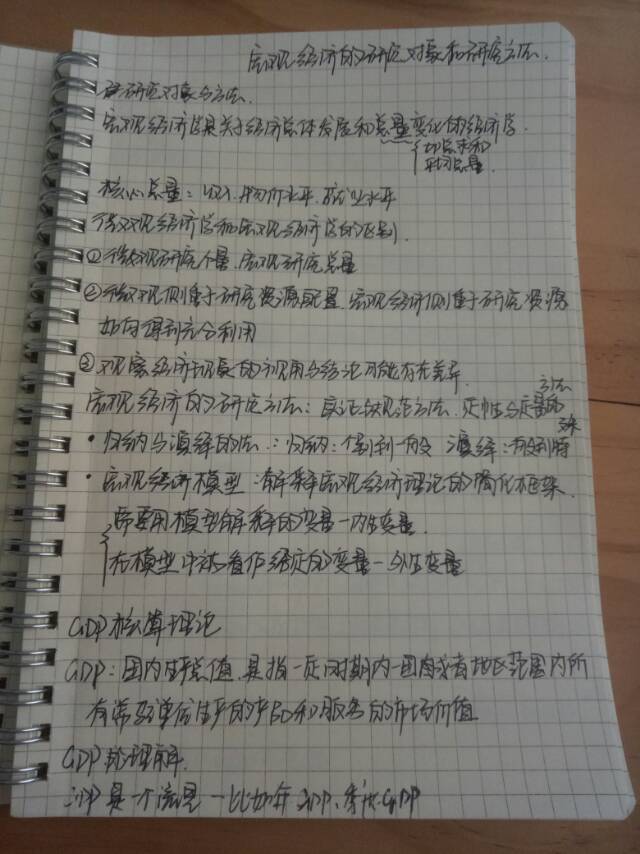 宏观经济的研究对象和研究方法.
研究对象与方法.
宏观经济学是关于经济总体发展和总量变化的经济学.
总量
核心总量: 收入、物价水平、就业水平
微观经济学和宏观经济学的区别.
①微观研究个量、宏观研究总量
②微观侧重于研究资源配置、宏观经济侧重于研究资源
如何得到充分利用
③观察经济现象的视角与结论可能存在差异.
方法
宏观经济的研究方法: 实证与规范方法、定性与定量的
·归纳与演绎的方法: 归纳: 个别到一般 演绎: 一般到特殊
·宏观经济模型: 解释宏观经济理论的简化框架.
需要用模型解释的变量—内生变量.
在模型中被看作给定的变量—外生变量
GDP核算理论
GDP: 国内生产总值、是指一定时期内一国或者地区范围内所
有常驻单位生产的产品和服务的市场价值
GDP的理解.
GDP是一个流量—比如年GDP、季度GDP